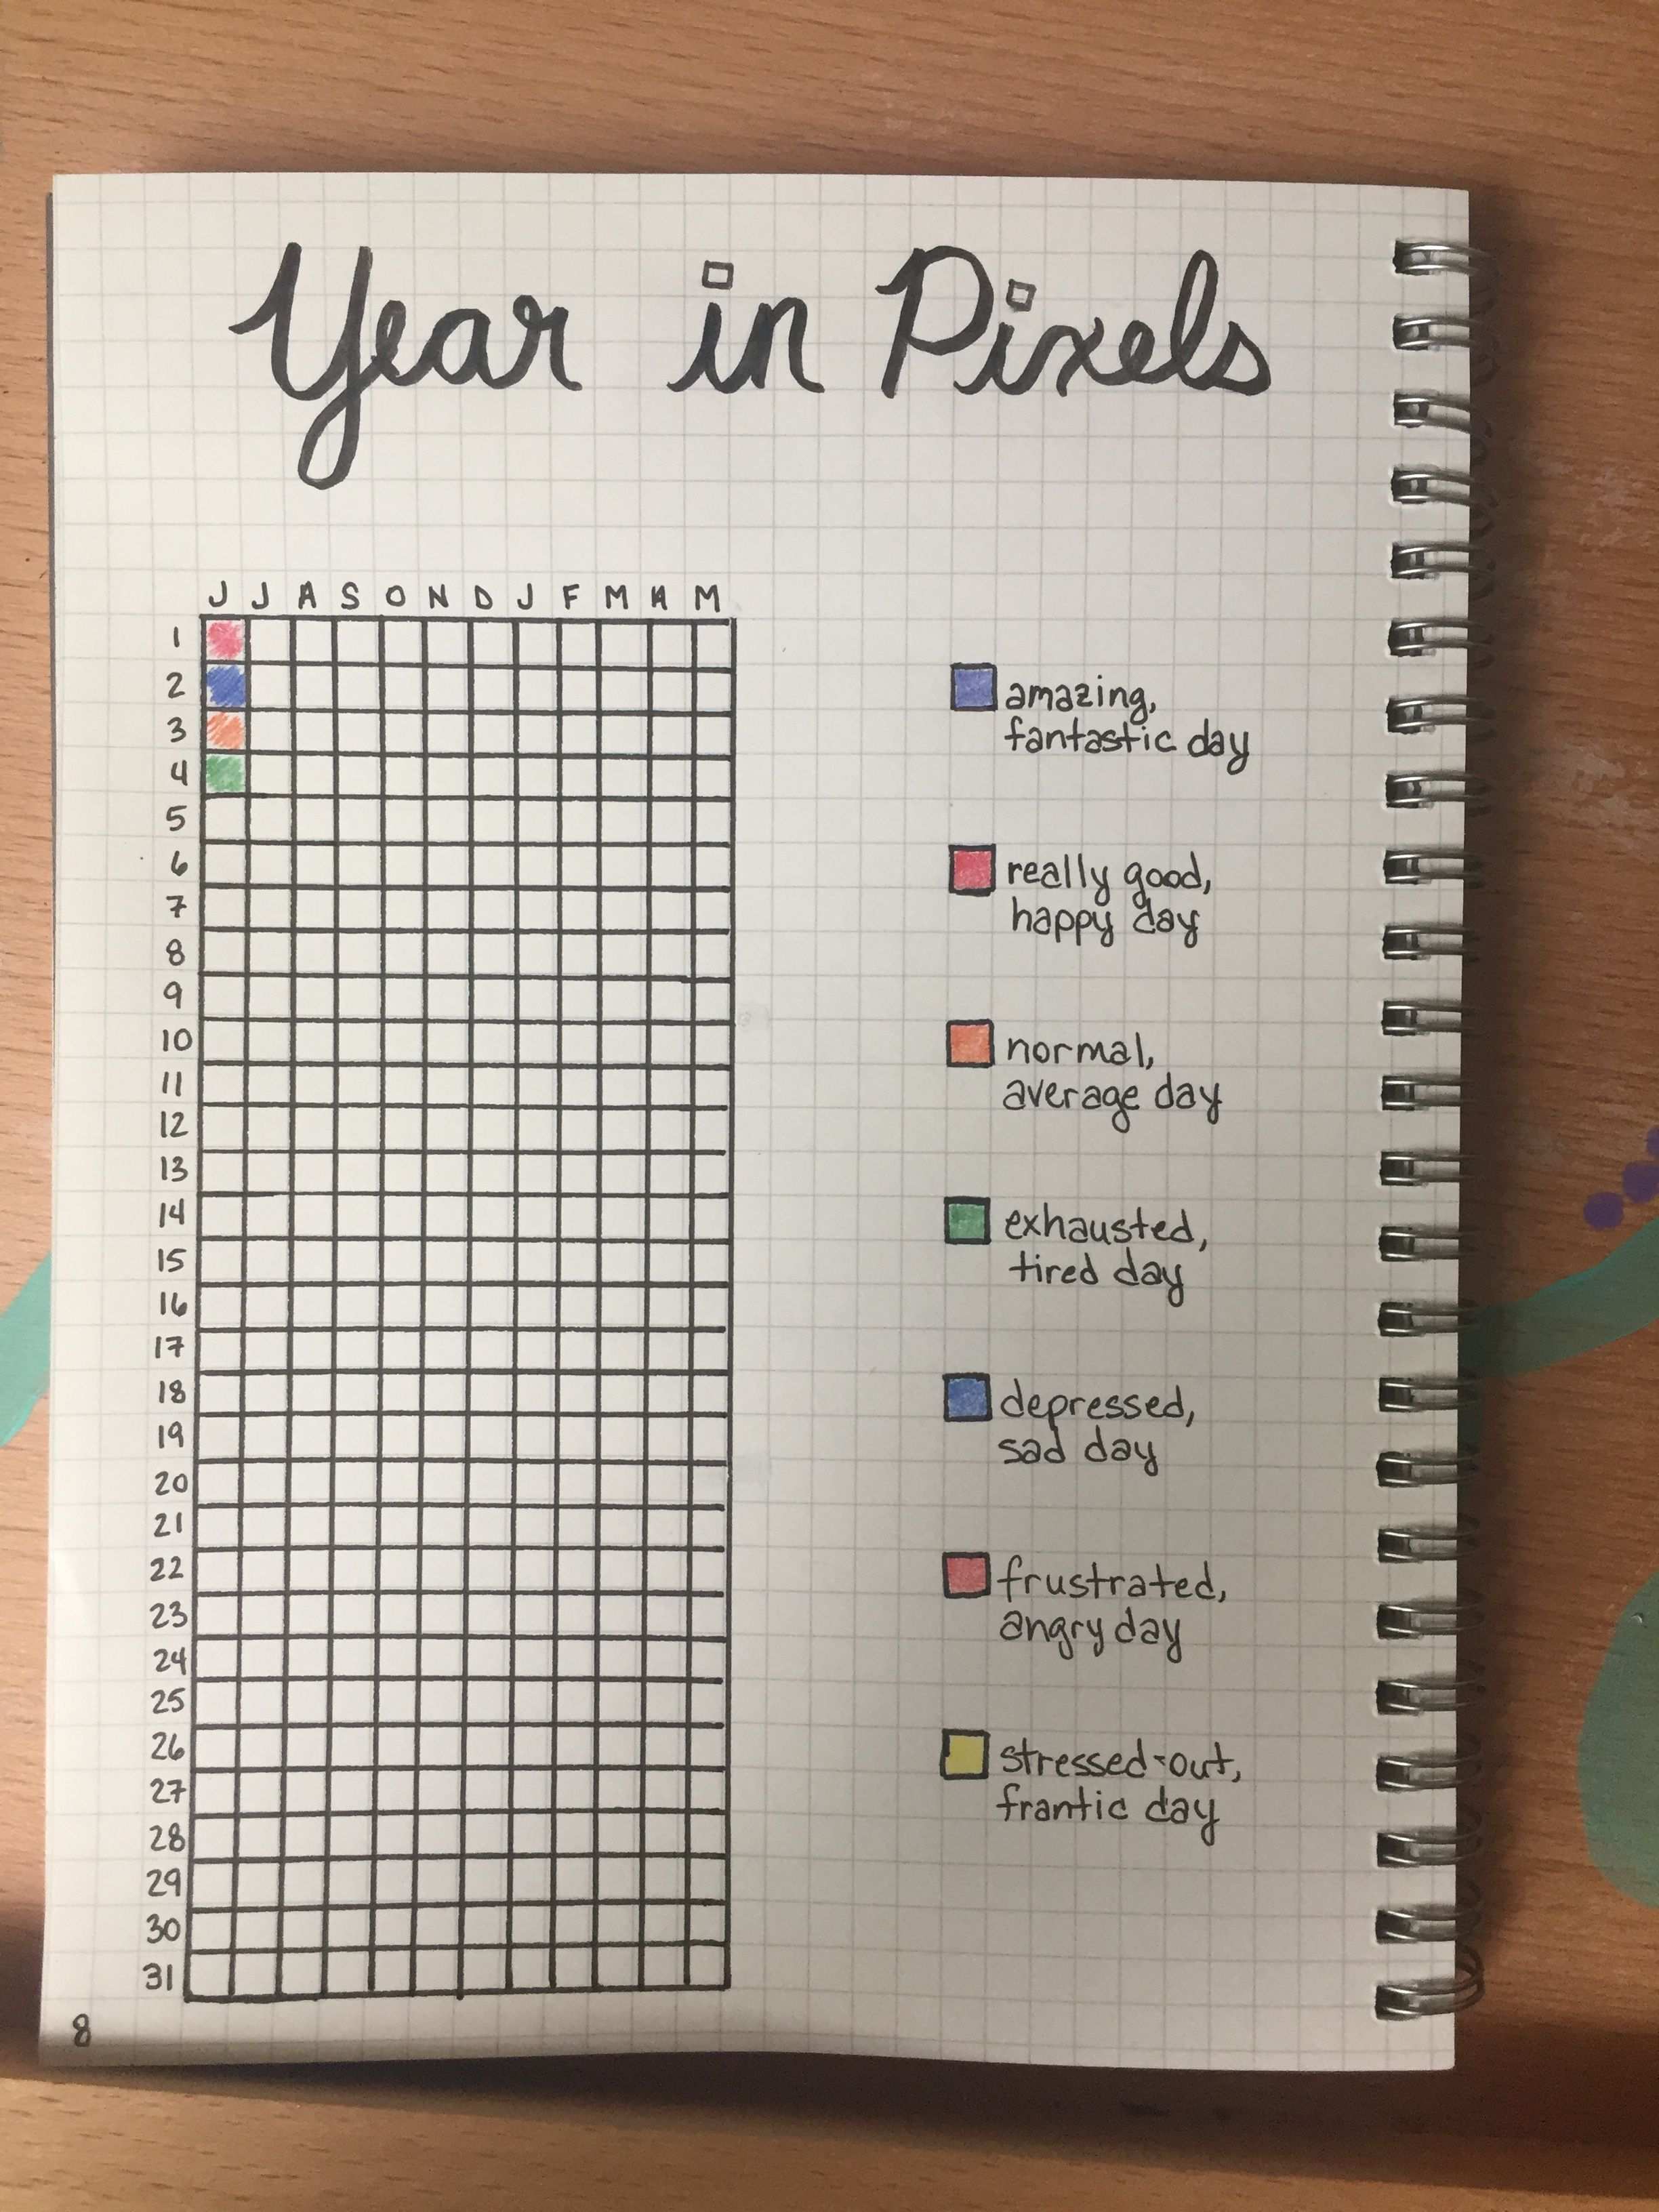 Year in Pixels
J J A S O N D J F M A M
1
2
3
4
5
6
7
8
9
10
11
12
13
14
15
16
17
18
19
20
21
22
23
24
25
26
27
28
29
30
31
amazing,
fantastic day
really good,
happy day
normal,
average day
exhausted,
tired day
depressed,
sad day
frustrated,
angry day
stressed-out,
frantic day
8